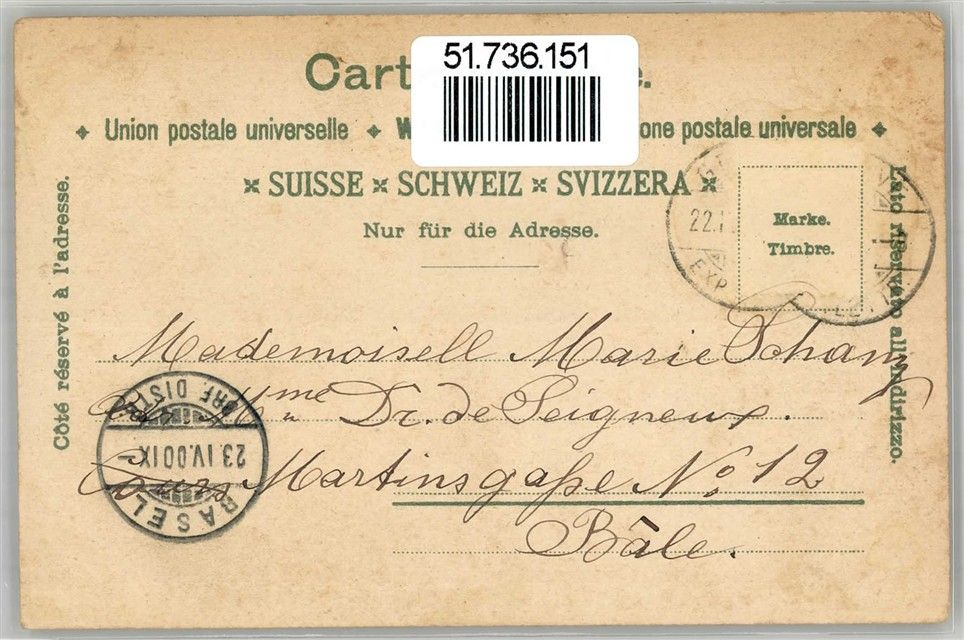 51.736.151
Cart e.
Union postale universelle W one postale universale
SUISSE SCHWEIZ SVIZZERA
Nur für die Adresse.
Marke.
Timbre.
Côté réservé à l'adresse.
Lato riservato all'indirizzo.
22.I
EXP
Mademoiselle Marie Schanz
Mme Dr. de Seigneux.
Martinsgaße No. 12
Bâle.
BASEL
23.IV.00 IX
BRF. DIST.